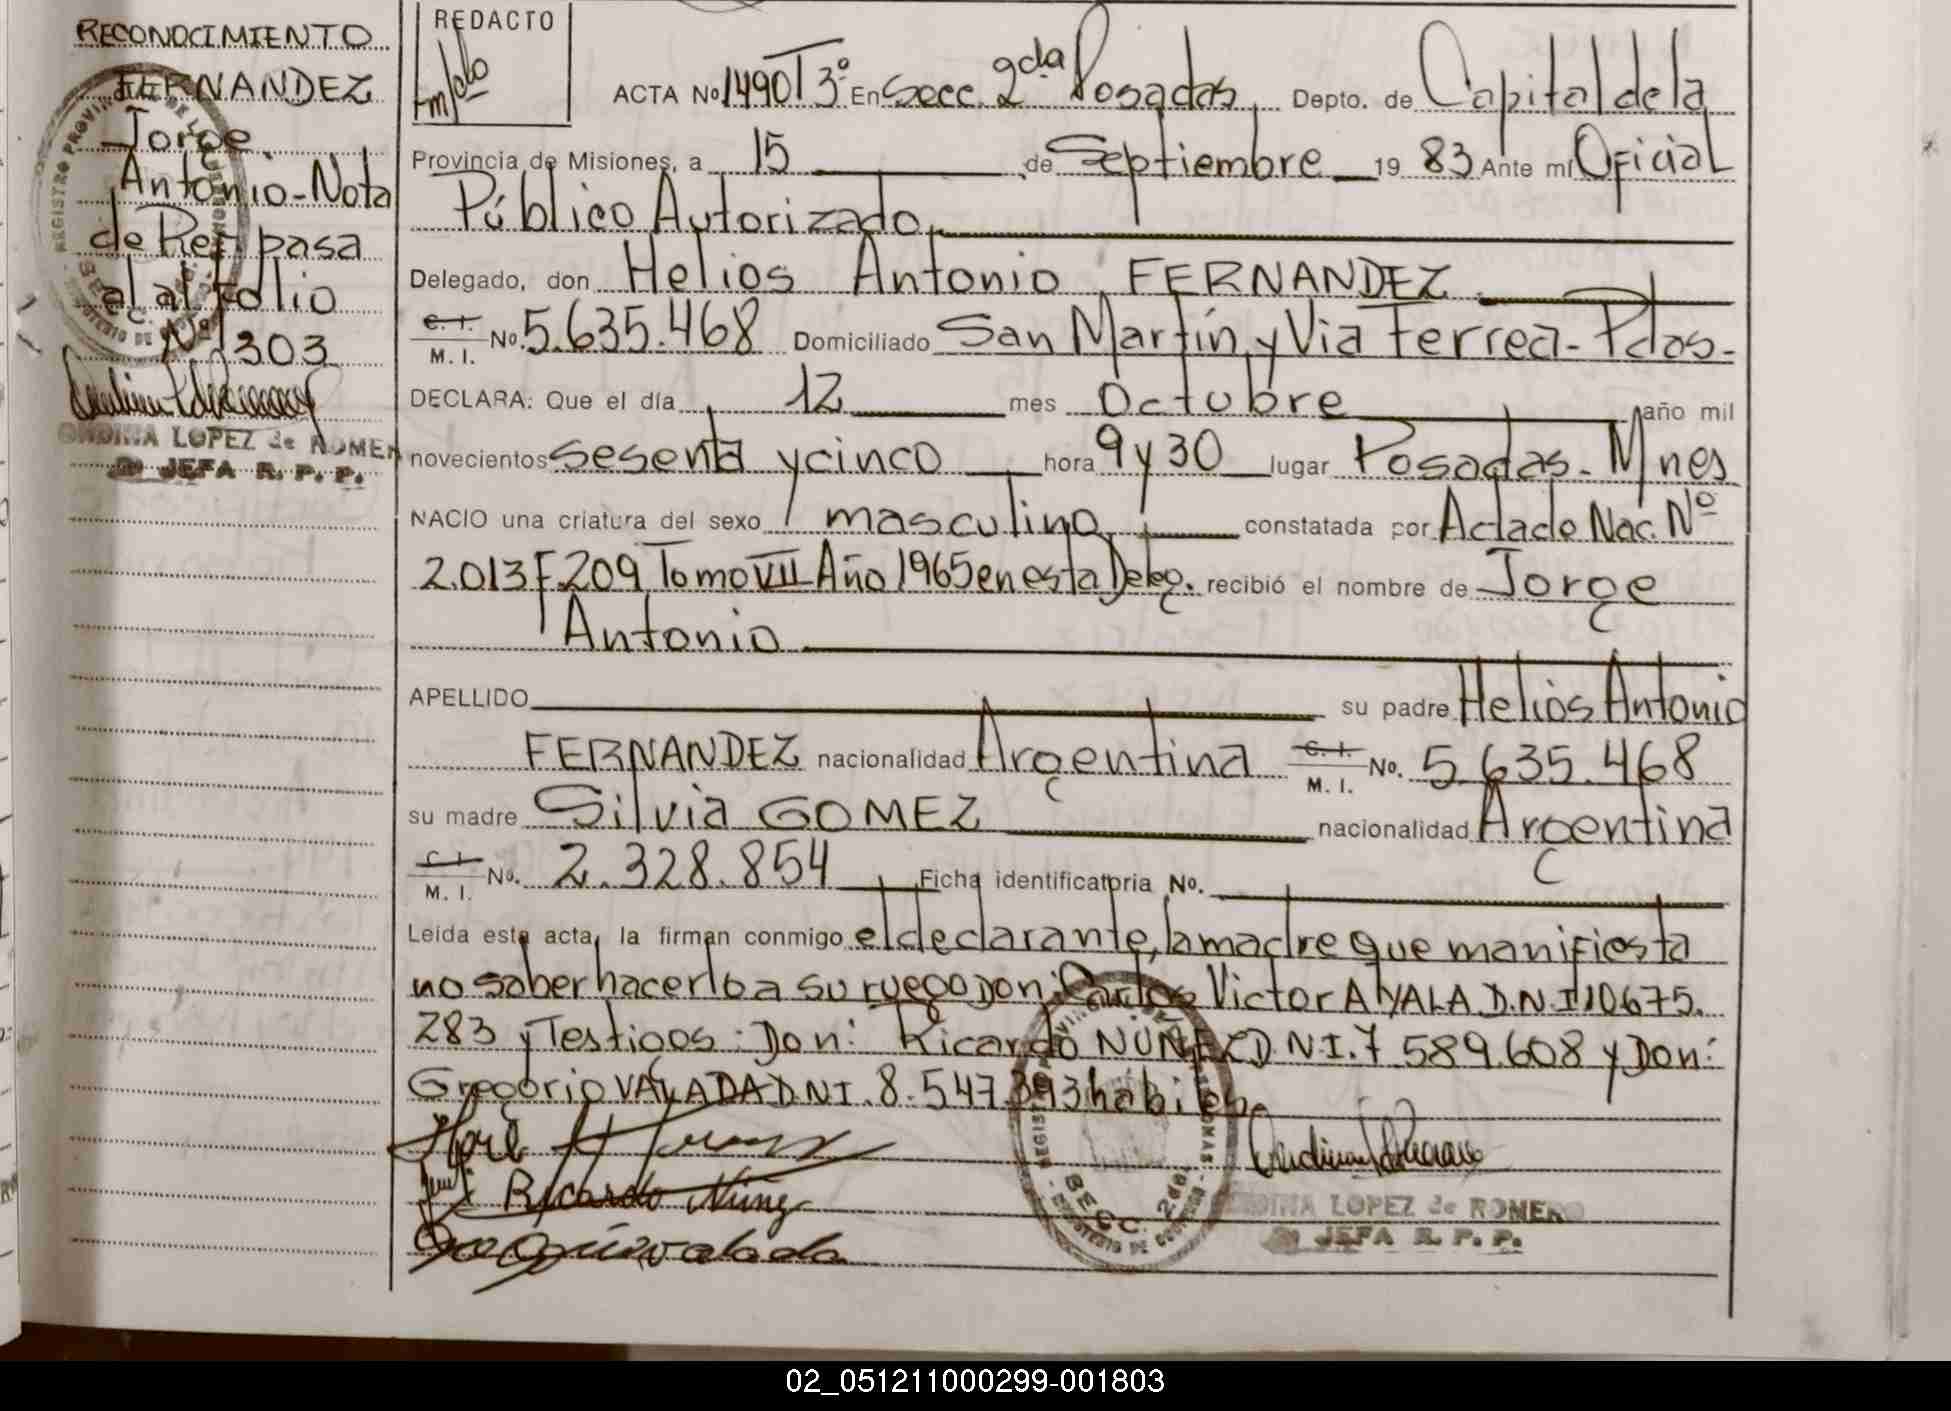 RECONOCIMIENTO
FERNANDEZ
Jorge
Antonio-Nota
de Ref pasa
al al folio
Nº 1303
ONDINA LOPEZ de ROMERO
JEFA R. P. P.
REDACTO
ACTA No 1490 T 3º En Secc. 2da Posadas, Depto. de Capital de la
Provincia de Misiones, a 15 de Septiembre 19 83 Ante mi Oficial
Público Autorizado
Delegado, don Helios Antonio FERNANDEZ
C. I. M. I. No 5.635.468 Domiciliado San Martín y Via Ferrea - Pdas-
DECLARA: Que el día 12 mes Octubre año mil
novecientos sesenta y cinco hora 9 y 30 lugar Posadas - Mnes
NACIO una criatura del sexo masculino constatada por Acta de Nac. Nº
2.013 F.209 Tomo VII Año 1965 en esta Deleg. recibió el nombre de Jorge
Antonio
APELLIDO su padre Helios Antonio
FERNANDEZ nacionalidad Argentina C. I. M. I. No. 5.635.468
su madre Silvia GOMEZ nacionalidad Argentina
C. I. M. I. No. 2.328.854 Ficha identificatoria No.
Leida esta acta, la firman conmigo el declarante, la madre que manifiesta
no saber hacerlo a su ruego Don: Carlos Victor AYALA D.N.I 10675.
283 y Testigos: Don: Ricardo NUÑEZ D N I. 7 589.608 y Don:
Gregorio VALADA D N I. 8.547.393 habiles
Ricardo Núñez
ONDINA LOPEZ de ROMERO
JEFA R. P. P.
REGISTRO PROVINCIAL DE LAS PERSONAS
SECC. 2da.
MINISTERIO DE GOBIERNO
02_051211000299-001803